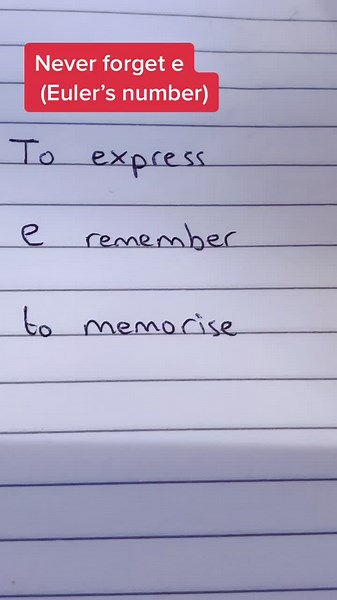 Never forget e
(Euler's number)
To express
e remember
to memorise